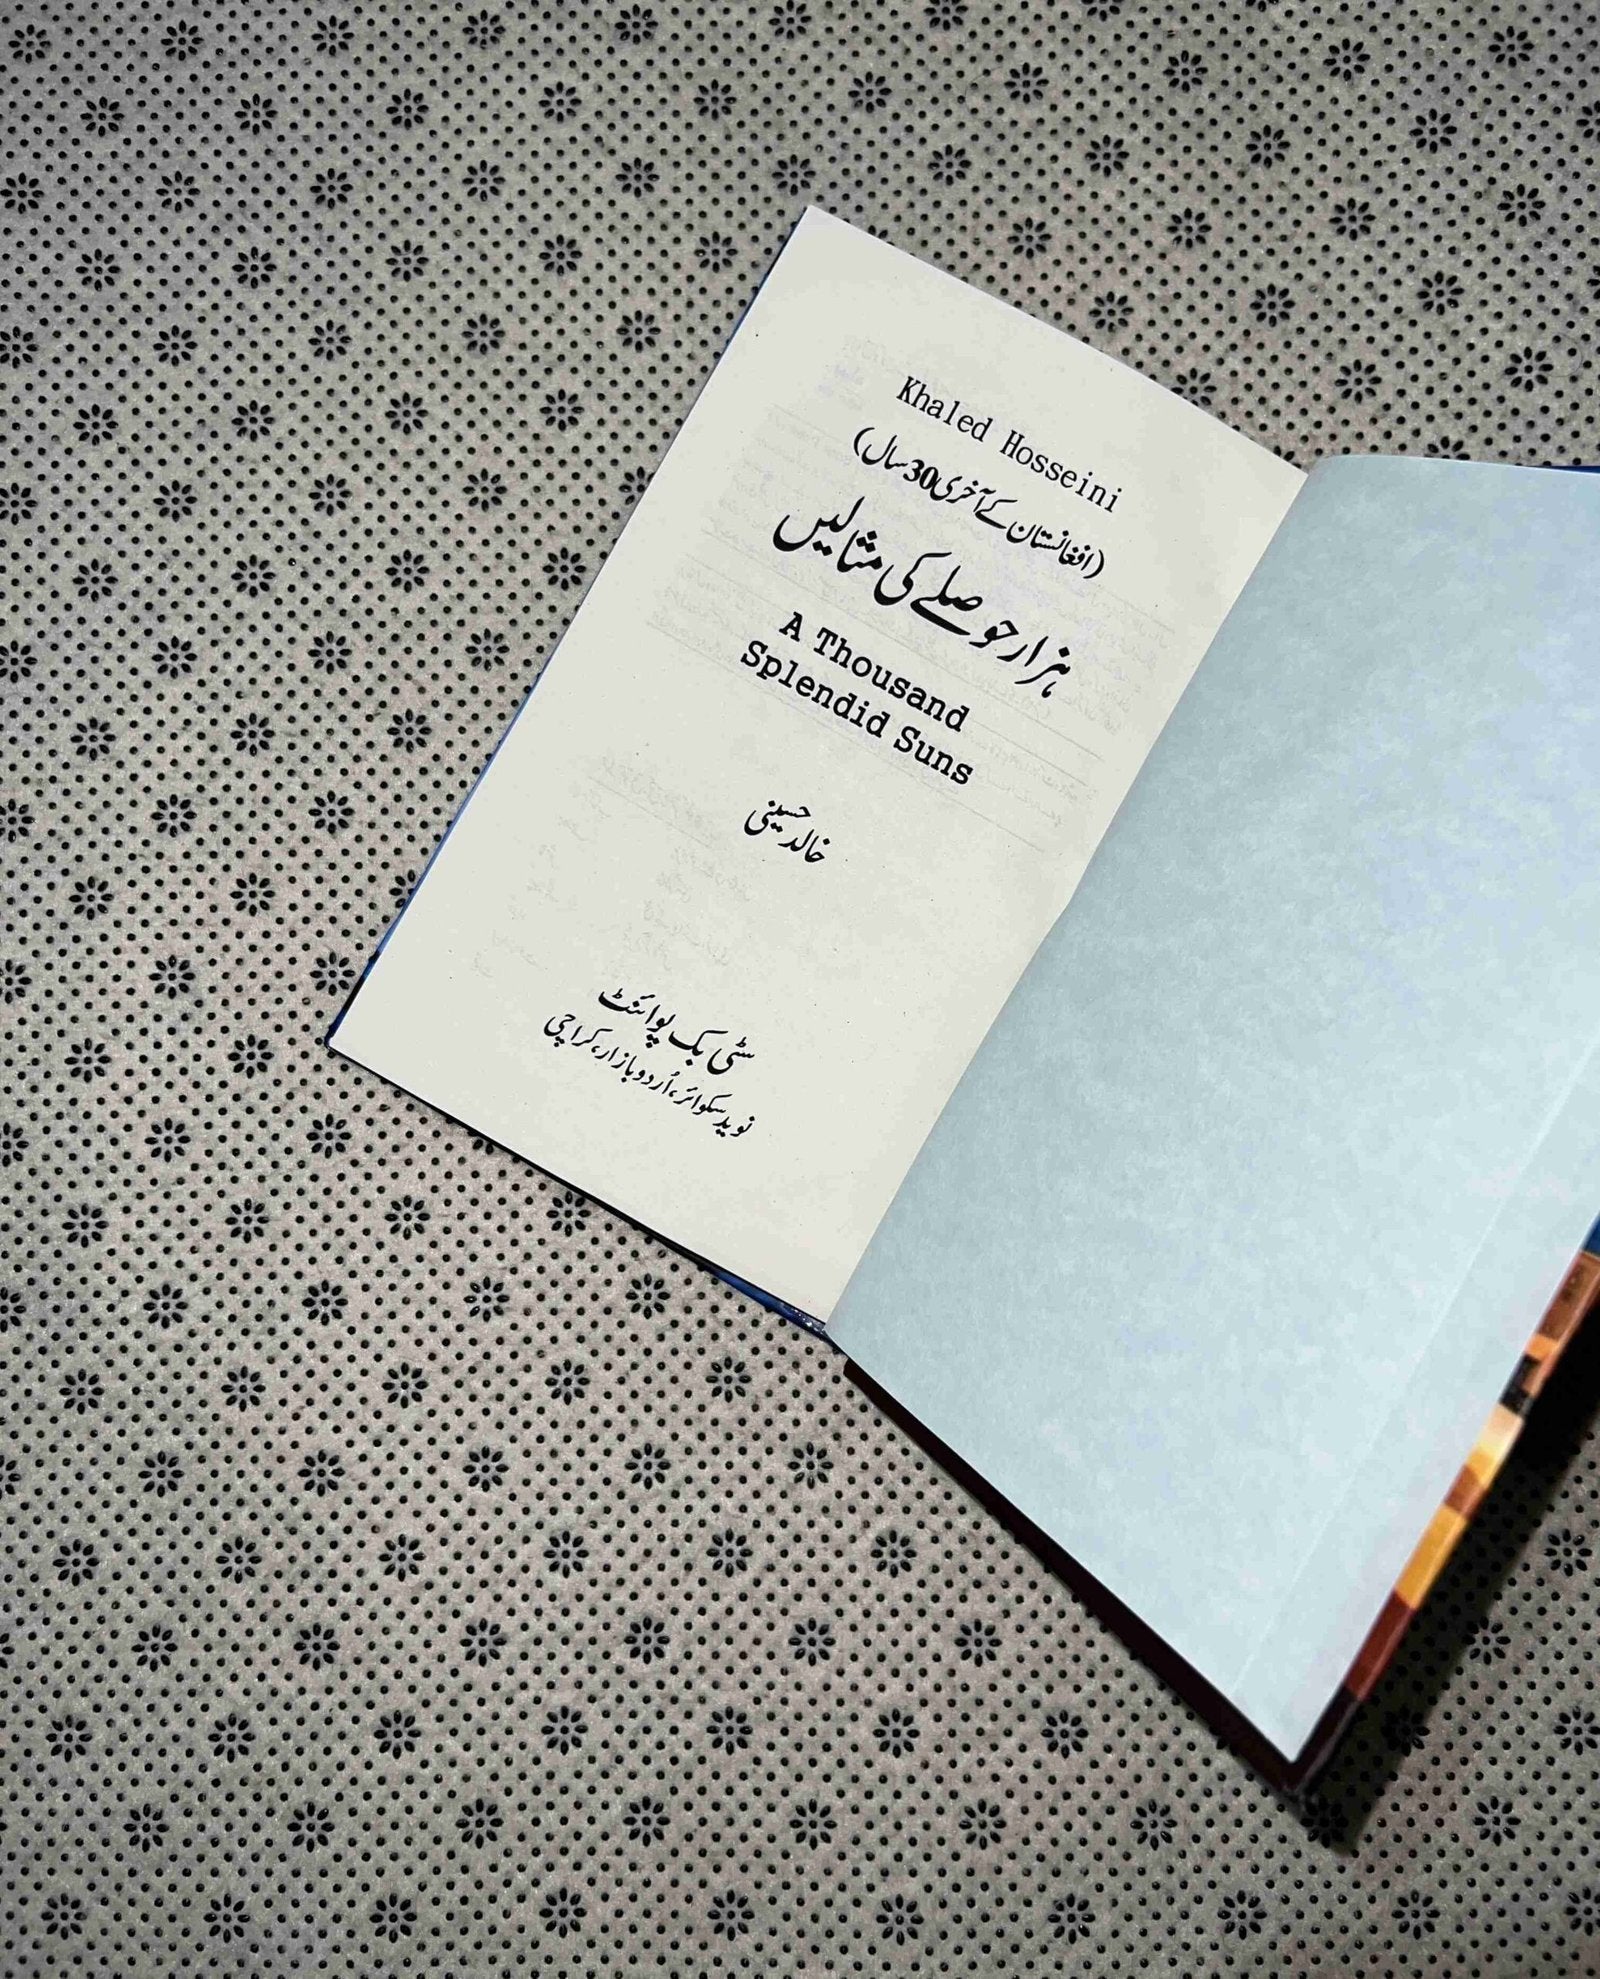 Khaled Hosseini
(افغانستان کے آخری 30 سال)
ہزار حوصلے کی مثالیں
A Thousand
Splendid Suns
خالد حسینی
سٹی بک پوائنٹ
نوید سکوائر، اُردو بازار، کراچی